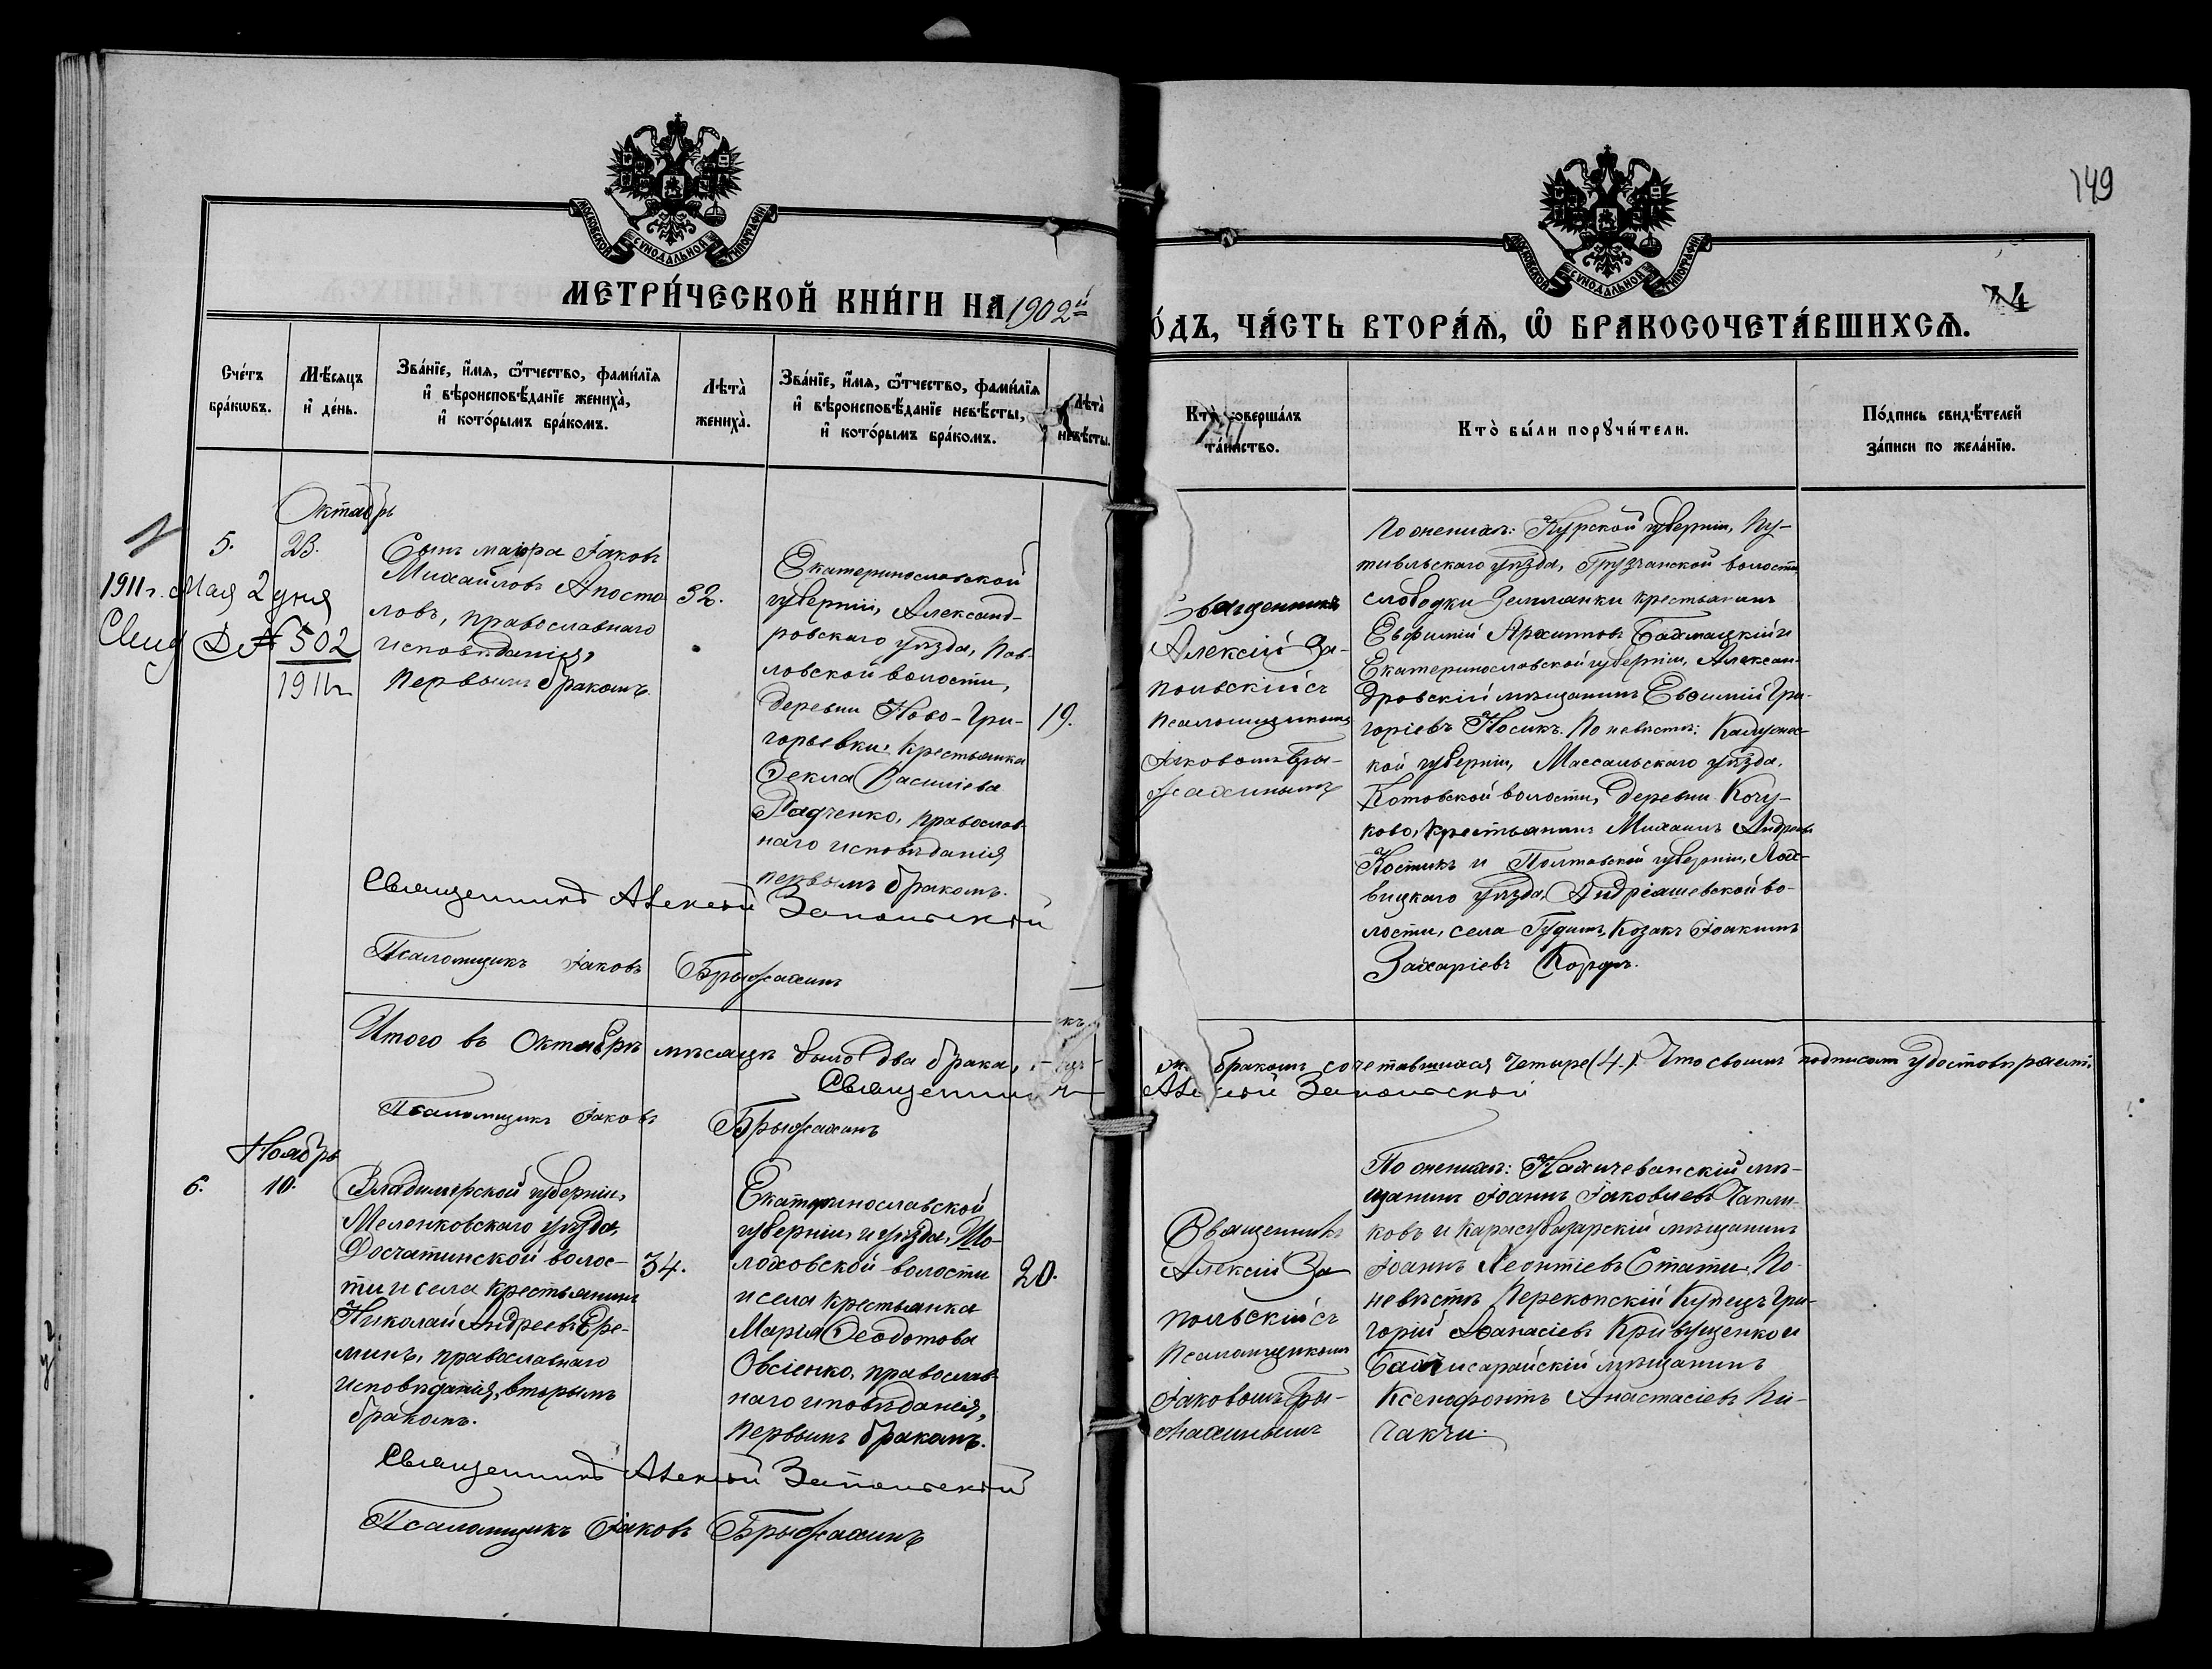 149
МОСКОВСКОЙ СѴНОДАЛЬНОЙ ТИПОГРАФІИ
МОСКОВСКОЙ СѴНОДАЛЬНОЙ ТИПОГРАФІИ
МЕТРИ́ЧЕСКОЙ КНИ́ГИ НА 1902й
О́ДЪ, ЧА́СТЬ ВТОРА́Я, Ѡ҆ БРАКОСОЧЕТА́ВШИХСЯ.
4
Сче́тъ
бра́кѡвъ.
Мѣ́сяцъ
и҆ де́нь.
Зва́нїе, и҆́мя, ѻ҆́тчество, фами́лїя
и҆ вѣроисповѣ́данїе жениха̀,
и҆ кото́рымъ бра́комъ.
Лѣта̀
жениха̀.
Зва́нїе, и҆́мя, ѻ҆́тчество, фами́лїя
и҆ вѣроисповѣ́данїе невѣ́сты,
и҆ кото́рымъ бра́комъ.
Лѣта̀
невѣ́сты.
Кто̀ соверша́лъ
та́инство.
Кто̀ бы́ли порꙋчи́тели.
По́дпись свидѣ́телей
за́писи по жела́нїю.
Октябрь
5.
23.
1911 г. Мая 2 дня
№ 502
1911 г.
Сынъ маіора Іаковъ
Михайловъ Апосто
ловъ, православнаго
исповѣданія,
первымъ бракомъ.
32.
Екатеринославской
губерніи, Александ-
ровскаго уѣзда, Пав-
ловской волости,
деревни Ново-Гри-
горьевки, крестьянка
Ѳекла Василіева
Радченко, православ-
наго исповѣданія
первымъ бракомъ.
19.
Священникъ
Алексій За-
польскій съ
псаломщикомъ
Іаковомъ Бры-
жахинымъ
По женихѣ: Курской губерніи, Пу-
тивльскаго уѣзда, Грузчанской волости,
слободки Землянки крестьянинъ
Евфимій Архиповъ Бахмацкій и
Екатеринославской губерніи, Алексан-
дровскій мѣщанинъ Евфимій Гри-
горіевъ Носикъ. По невѣстѣ: Калужс-
кой губерніи, Массальскаго уѣзда,
Котовской волости, деревни Кочу-
ково, крестьянинъ Михаилъ Андреевъ
Костикъ и Полтавской губерніи, Лох-
вицкаго уѣзда, Андріашевской во-
лости, села Гудимъ, козакъ Іоакимъ
Захаріевъ Коржъ.
Священникъ Алексій Запольскій
Псаломщикъ Іаковъ Брыжахинъ
Итого въ Октябрѣ мѣсяцѣ было два брака, бракомъ сочетавшихся четыре (4). Что своимъ подписомъ удостовѣряемъ:
Священникъ Алексій Запольскій
Псаломщикъ Іаковъ Брыжахинъ
Ноябрь
6.
10.
Владимірской губерніи,
Меленковскаго уѣзда,
Досчатинской волос-
ти и села крестьянинъ
Николай Андреевъ Ере-
минъ, православнаго
исповѣданія, вторымъ
бракомъ.
34.
Екатеринославской
губерніи и уѣзда, Шо-
лоховской волости
и села крестьянка
Марія Ѳеодотова
Овсіенко, православ-
наго иповѣданія,
первымъ бракомъ.
20.
Священникъ
Алексій За
польскій съ
псаломщикомъ
Іаковомъ Бры-
жахинымъ
По женихѣ: Нахичеванскій мѣ-
щанинъ Іоаннъ Іаковлевъ Чапли-
ковъ и Карасубазарскій мѣщанинъ
Іоаннъ Леонтіевъ Стати. По
невѣстѣ Перекопскій купецъ Гри-
горій Аѳанасіевъ Кривущенко и
Бахчисарайскій мѣщанинъ
Ксенофонтъ Анастасіевъ Пи-
чакчи.
Священникъ Алексій Запольскій
Псаломщикъ Іаковъ Брыжахинъ